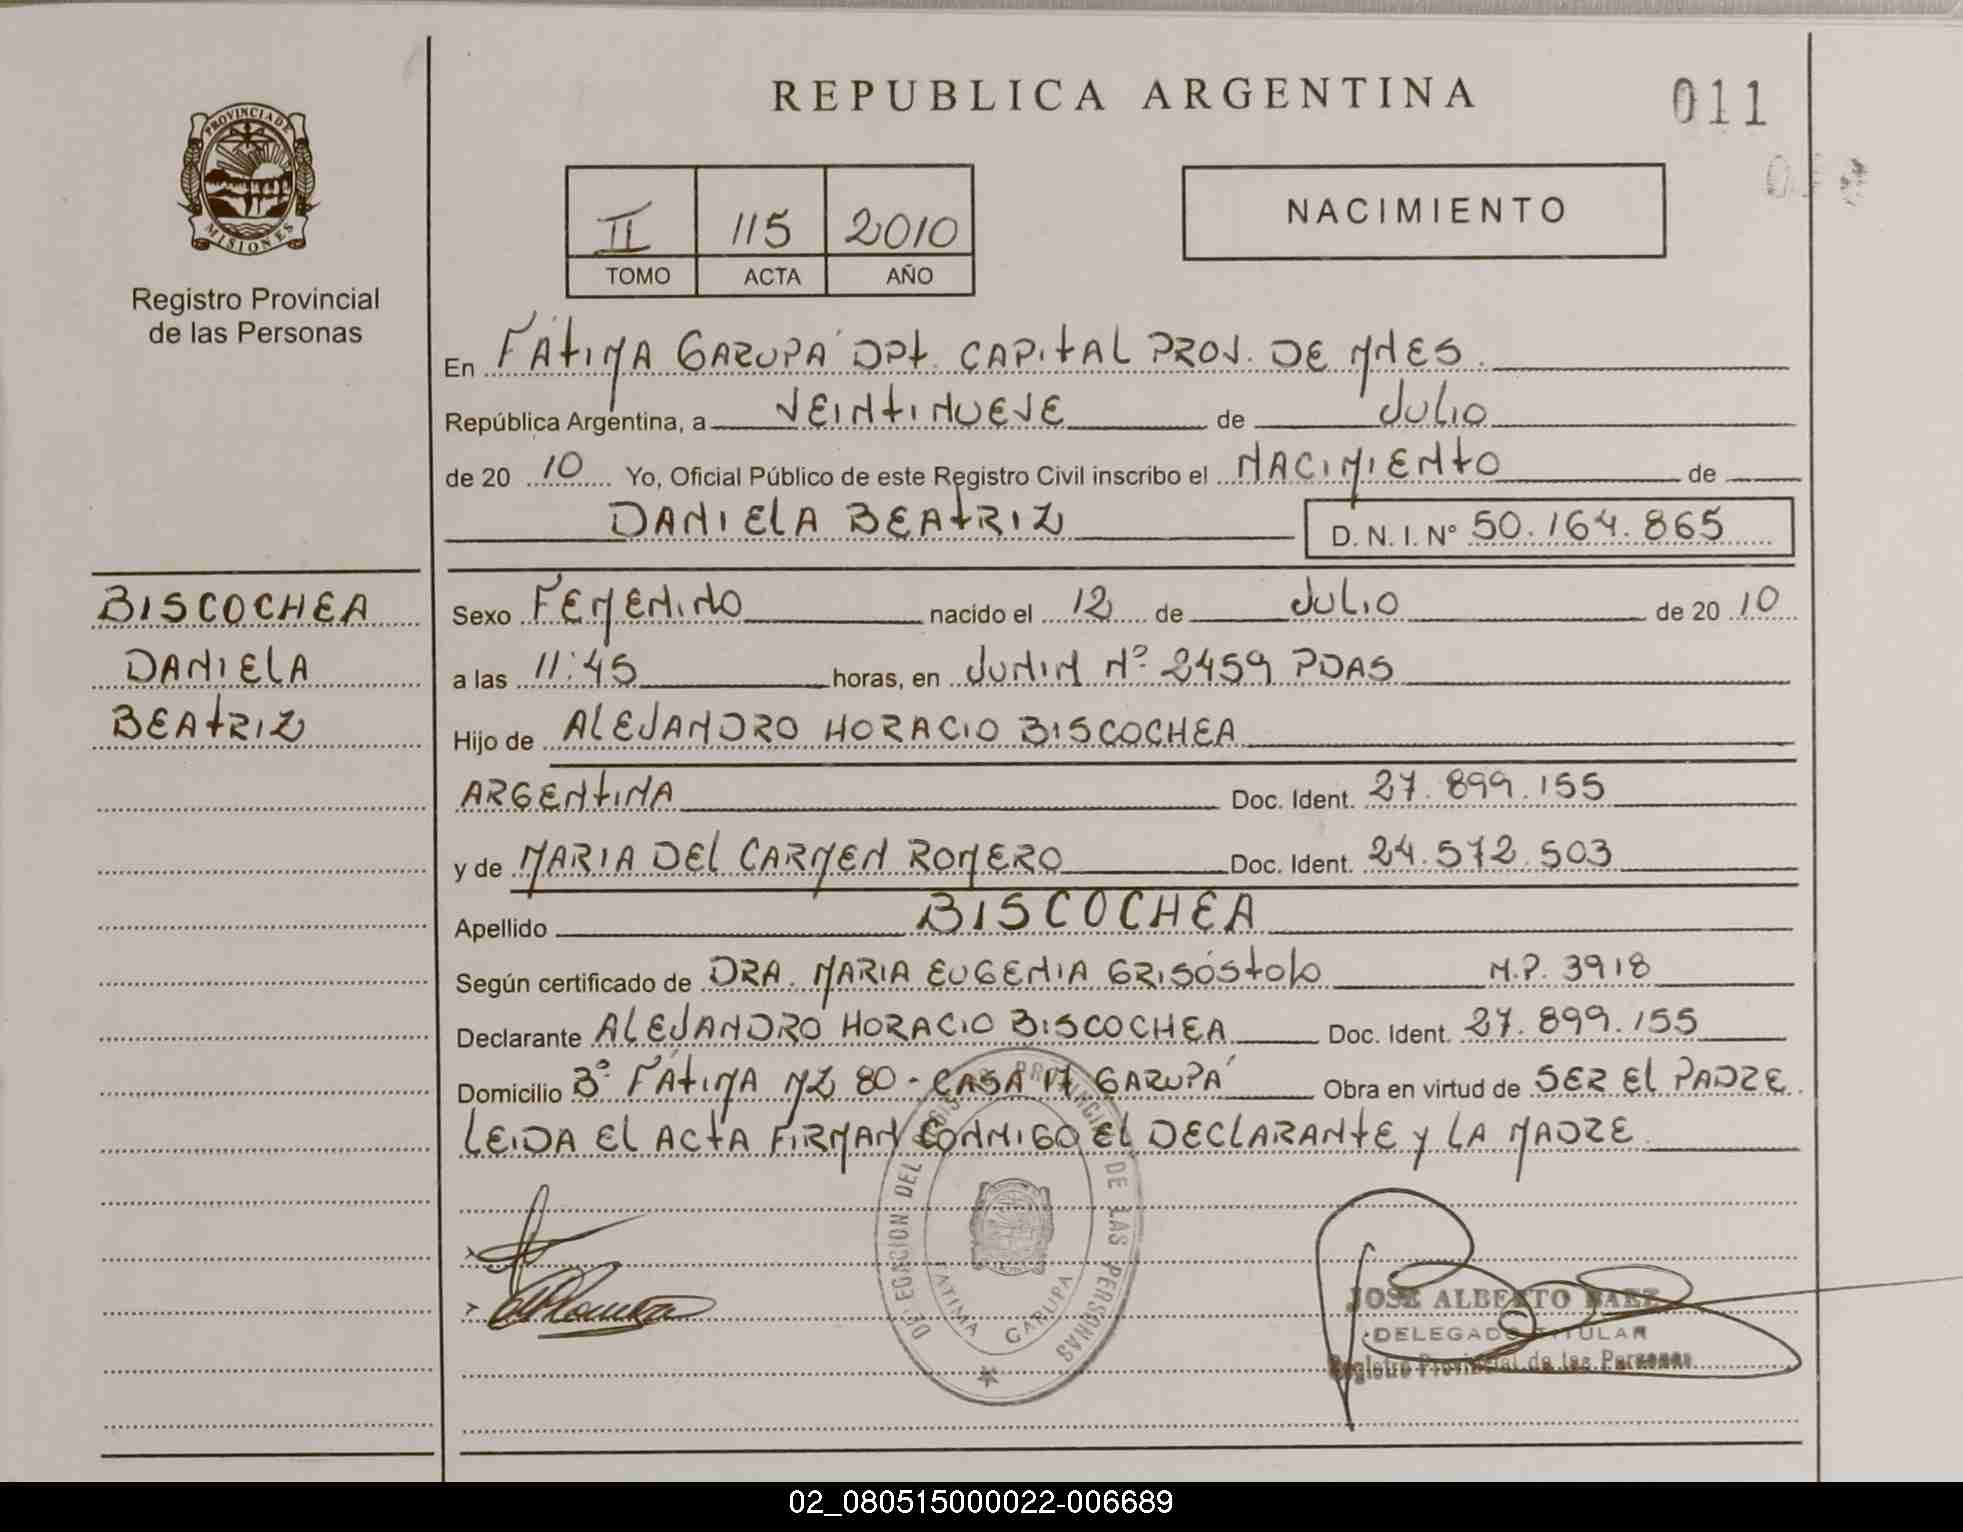 REPUBLICA ARGENTINA
011
PROVINCIA DE MISIONES
Registro Provincial
de las Personas
II 115 2010
TOMO ACTA AÑO
NACIMIENTO
En FÁTIMA GARUPÁ DPt. CAPITAL PROV. DE MNES.
República Argentina, a VEINTINUEVE de JULIO
de 20 10 Yo, Oficial Público de este Registro Civil inscribo el NACIMIENTO de
DANIELA BEATRIZ D. N. I. N° 50.164.865
BISCOCHEA
DANIELA
BEATRIZ
Sexo FEMENINO nacido el 12 de JULIO de 20 10
a las 11:45 horas, en JUNIN Nº 2459 PDAS
Hijo de ALEJANDRO HORACIO BISCOCHEA
ARGENTINA Doc. Ident. 27.899.155
y de MARIA DEL CARMEN ROMERO Doc. Ident. 24.572.503
Apellido BISCOCHEA
Según certificado de DRA. MARIA EUGENIA GRISÓSTOLO M.P. 3918
Declarante ALEJANDRO HORACIO BISCOCHEA Doc. Ident. 27.899.155
Domicilio Bº FÁTIMA MZ 80 - CASA 17 GARUPÁ Obra en virtud de SER EL PADRE.
LEIDA EL ACTA FIRMAN CONMIGO EL DECLARANTE Y LA MADRE
DELEGACION DEL REGISTRO PROVINCIAL DE LAS PERSONAS
FATIMA GARUPA
JOSE ALBERTO BAEZ
DELEGADO TITULAR
Registro Provincial de las Personas
02_080515000022-006689